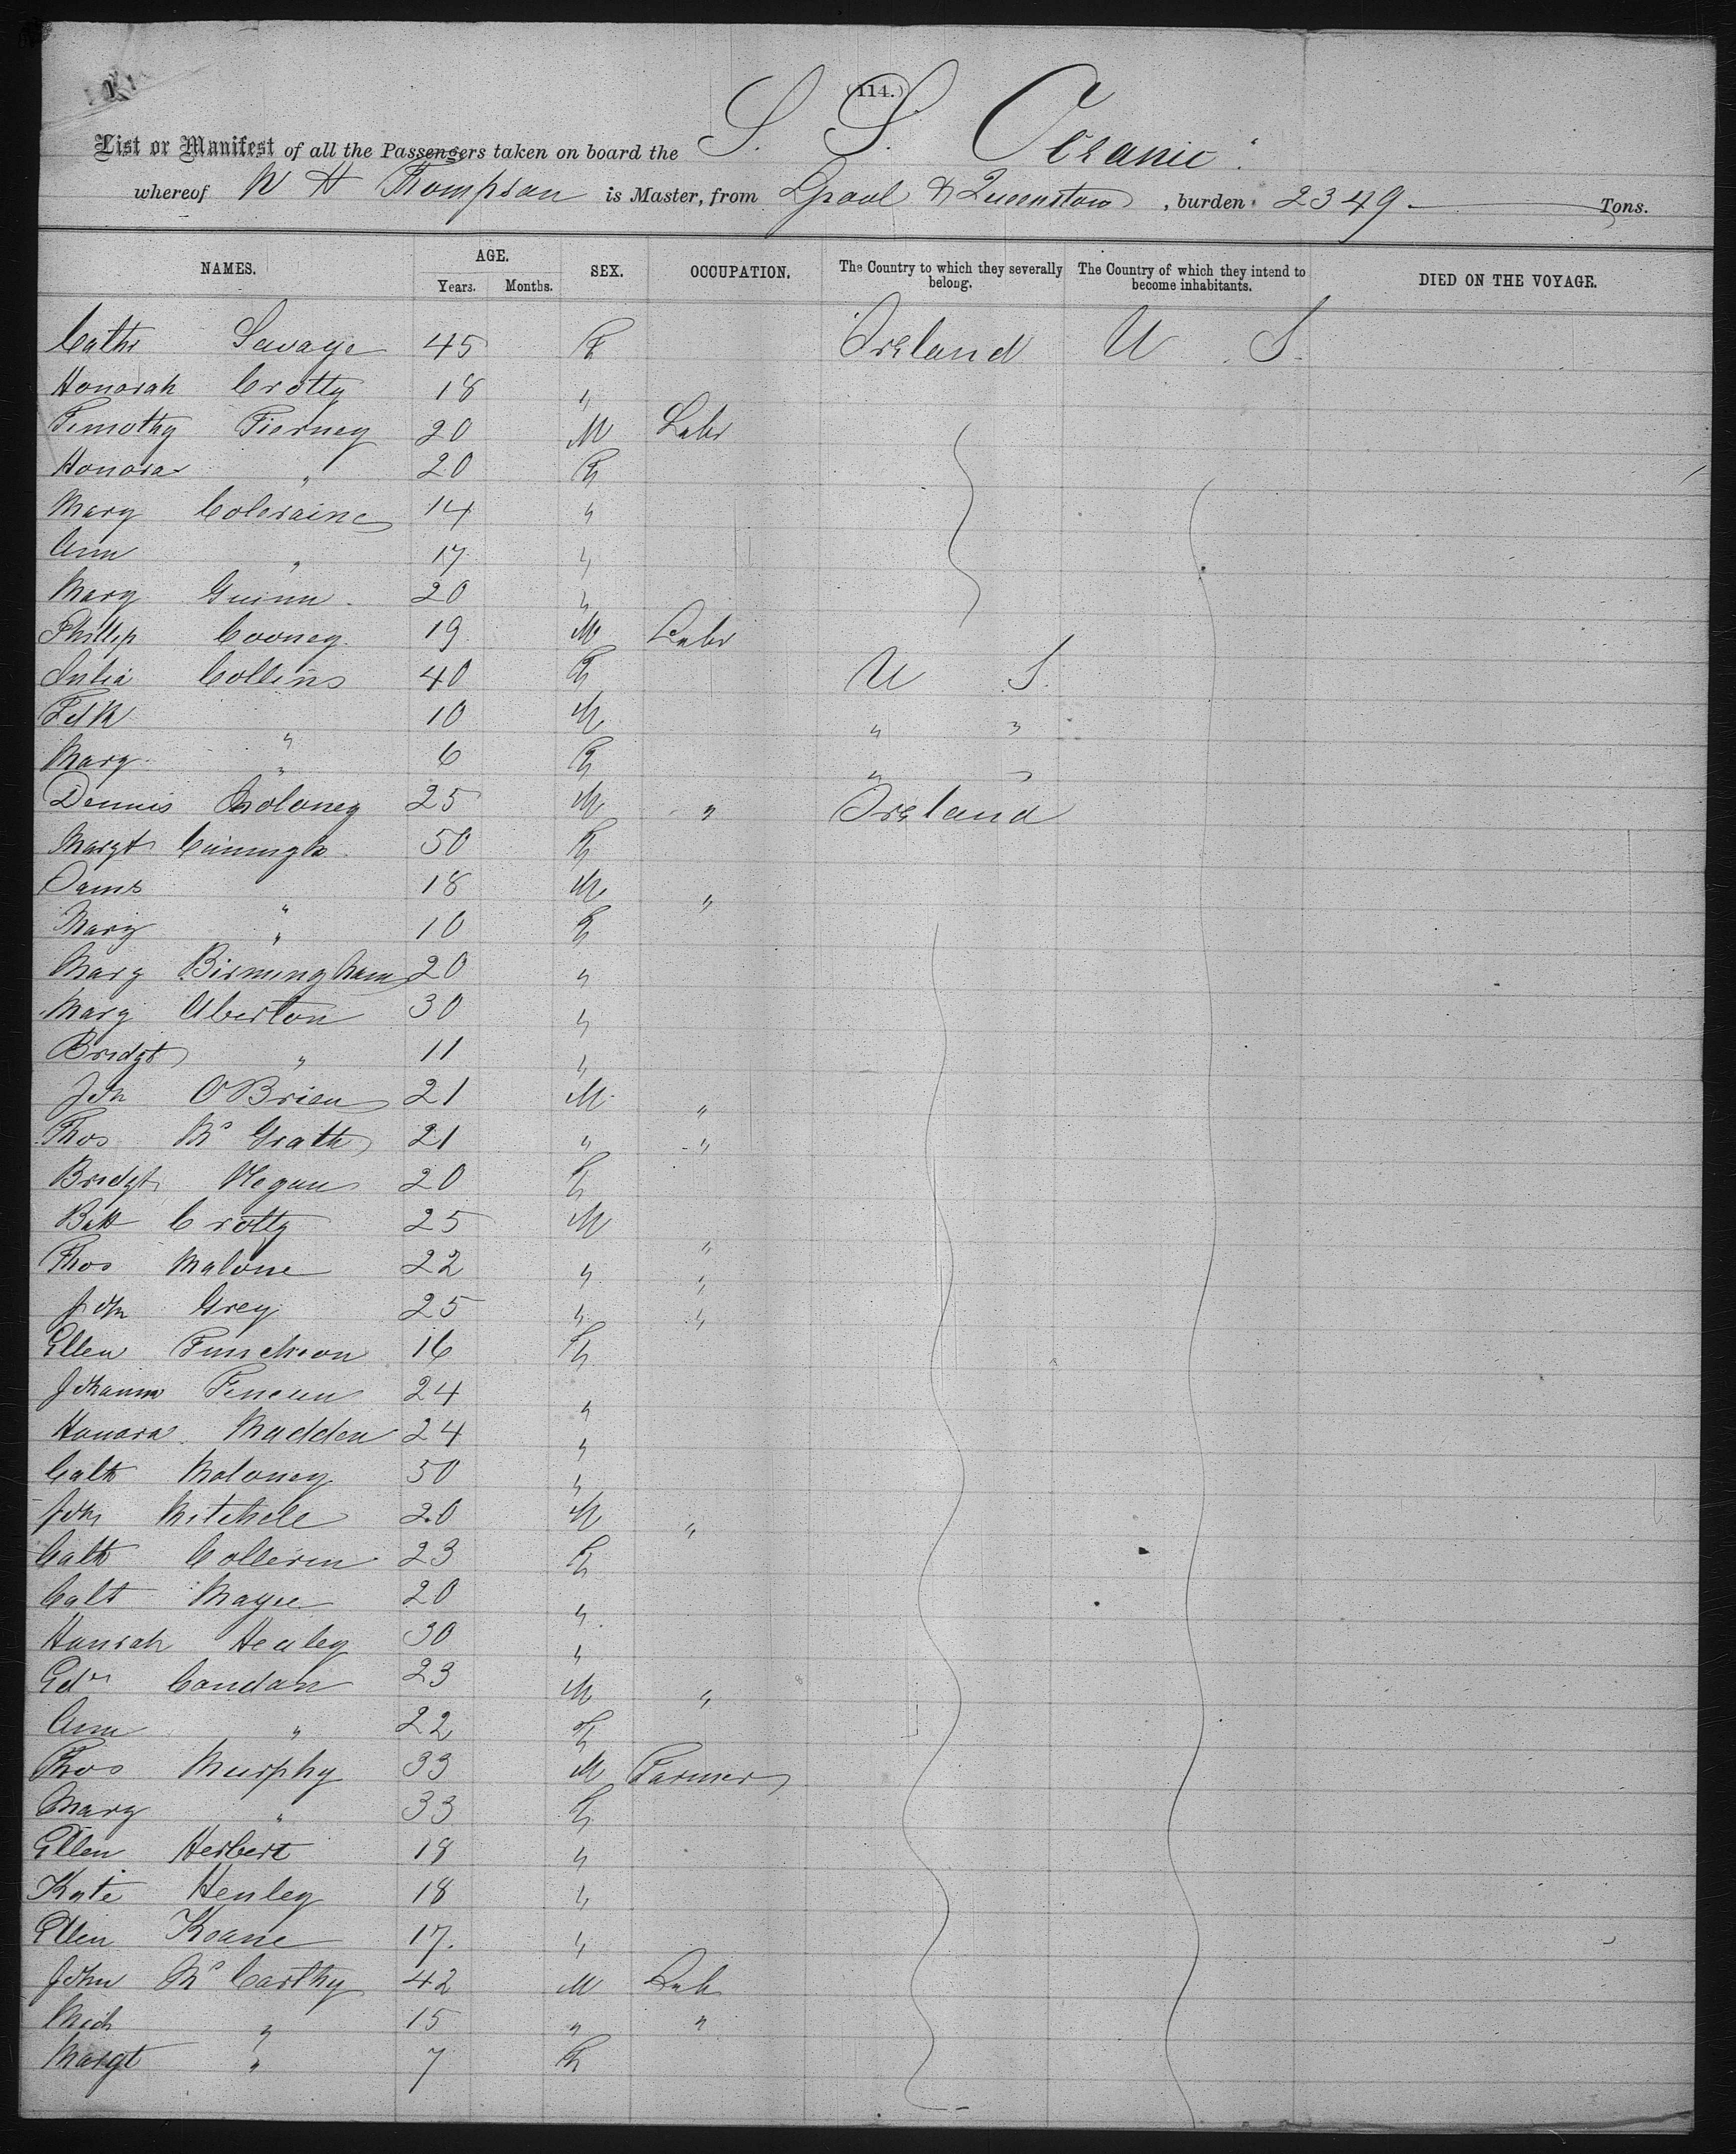 (114.)
List or Manifest of all the Passengers taken on board the S. S. Oceanic
whereof W H Thompson is Master, from Lpool & Queenstown, burden 2349 Tons.
NAMES. AGE. SEX. OCCUPATION. The Country to which they severally belong. The Country of which they intend to become inhabitants. DIED ON THE VOYAGE.
Years. Months.
Cath Savage 45 F Ireland U S.
Honorah Crotty 18 "
Timothy Tierney 20 M Labr
Honora " 20 F
Mary Coleraine 14 "
Ann " 17 "
Mary Guinn 20 "
Phillip Cooney 19 M Labr
Julia Collins 40 F U S.
10 M " "
Mary " 6 F " "
Dennis Moloney 25 M " Ireland
Margt 50 F
James " 18 M "
Mary " 10 F
Mary Birmingham 20 "
Mary Aberton 30 "
Bridgt " 11 "
Jon O'Brien 21 M "
Thos Mc Grath 21 " "
Bridgt Hogan 20 F
Crotty 25 M "
Thos Malone 22 " "
Jon Grey 25 " "
Ellen Funcheon 16 F
Johanna 24 "
Honora Madden 24 "
Cath Moloney 50 "
Jon Mitchele 20 M "
Cath Colleran 23 F
Cath 20 "
Hanrah Healey 30 "
Edw Condon 23 M "
Ann " 22 F
Thos Murphy 33 M Farmer
Mary " 33 F
Ellen Herbert 18 "
Kate Henley 18 "
Ellen Keane 17 "
John Mc Carthy 42 M Lab
Mich " 15 " "
Margt " 7 F